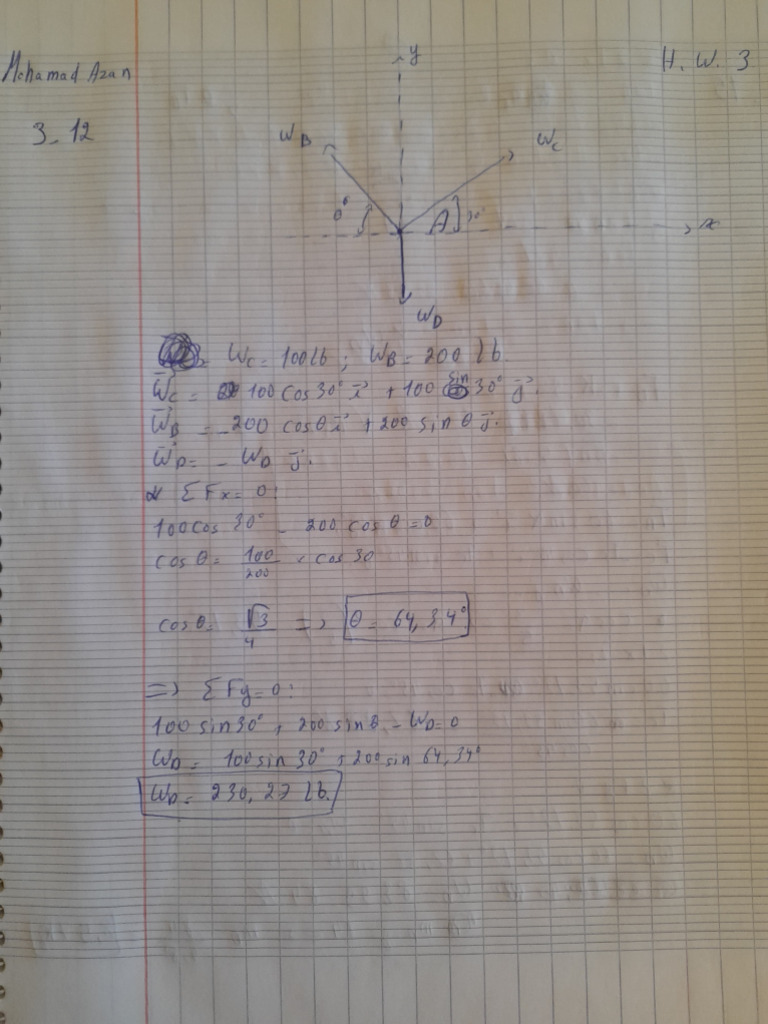 Mohamad Azan
H. W. 3
3_12
y
W_B
W_C
θ°
A
30°
x
W_D
W_C = 100 lb ; W_B = 200 lb.
W⃗_C = 100 cos 30° i⃗ + 100 sin 30° j⃗.
W⃗_B = -200 cos θ i⃗ + 200 sin θ j⃗.
W⃗_D = - W_D j⃗.
ΣFx = 0 :
100 cos 30° - 200 cos θ = 0
cos θ = 100/200 × cos 30
cos θ = √3/4 => θ = 64,34°
=> ΣFy = 0 :
100 sin 30° + 200 sin θ - W_D = 0
W_D = 100 sin 30° + 200 sin 64,34°
W_D = 230,27 lb.